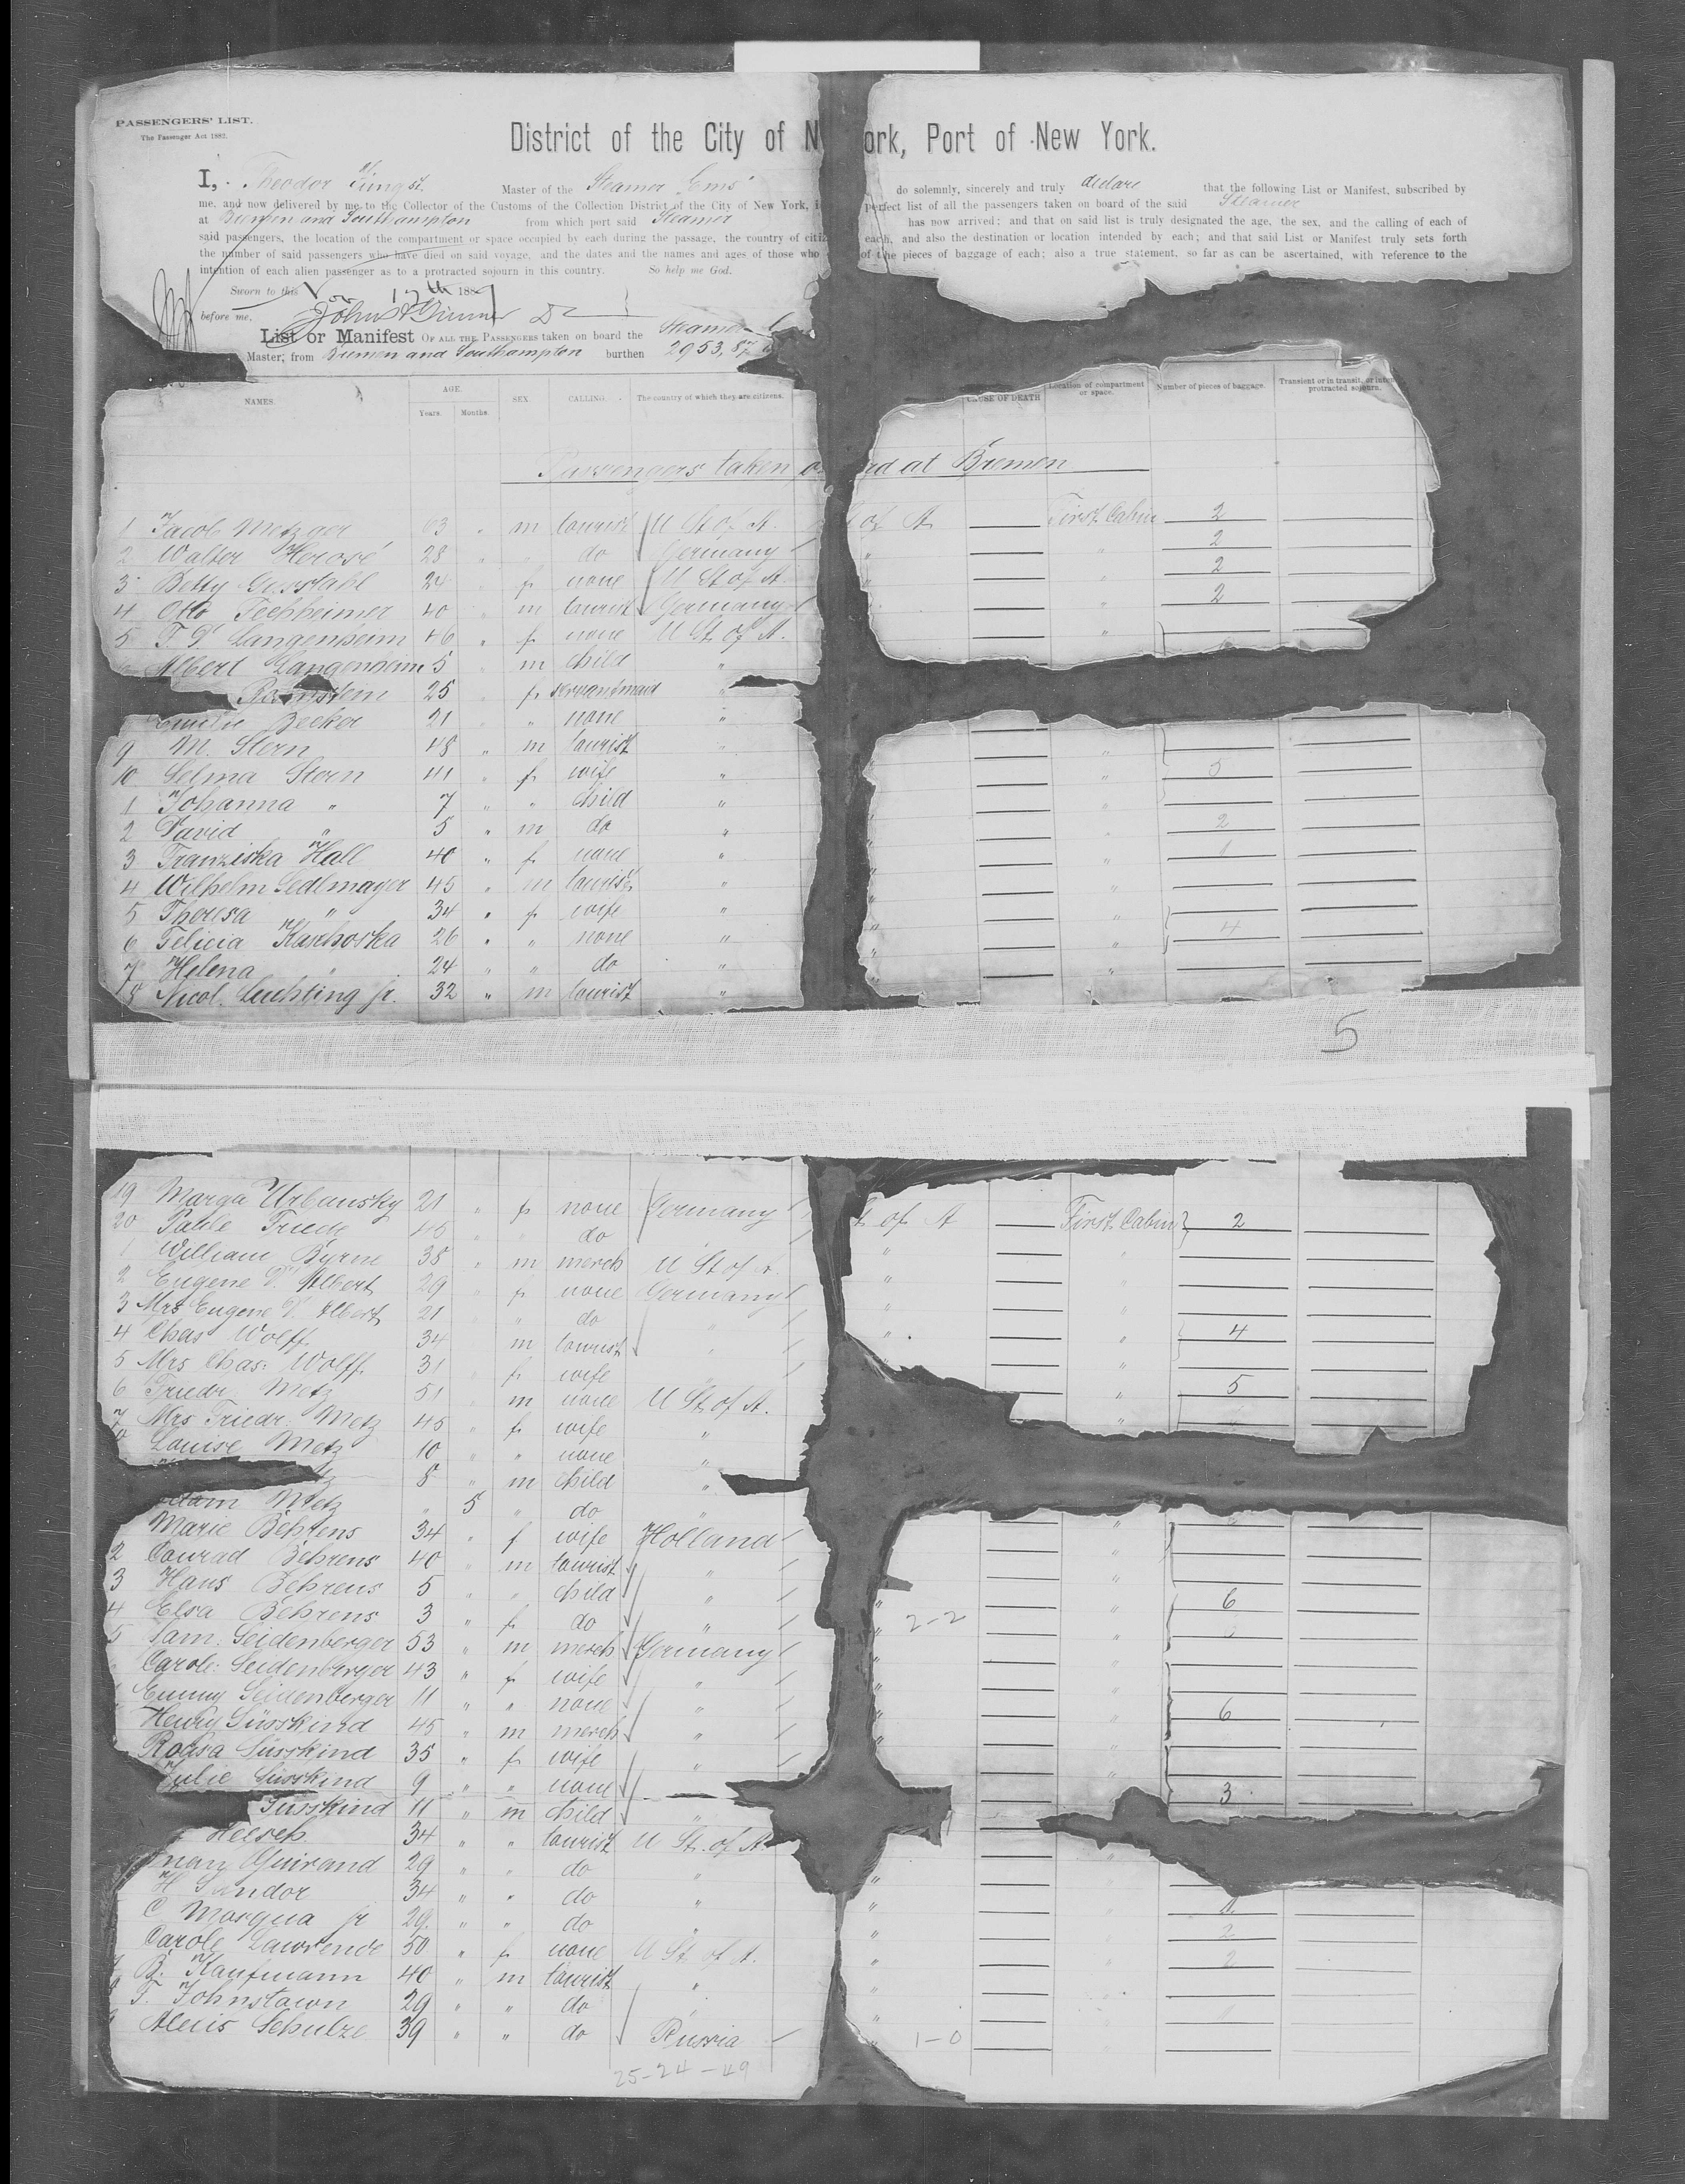 PASSENGERS' LIST.
The Passenger Act 1882.
District of the City of N ork, Port of New York.
I, Theodor Jüngst Master of the Steamer Ems do solemnly, sincerely and truly declare that the following List or Manifest, subscribed by
me, and now delivered by me to the Collector of the Customs of the Collection District of the City of New York, perfect list of all the passengers taken on board of the said Steamer
at Bremen and Southampton from which port said Steamer has now arrived; and that on said list is truly designated the age, the sex, and the calling of each of
said passengers, the location of the compartment or space occupied by each during the passage, the country of citiz each, and also the destination or location intended by each; and that said List or Manifest truly sets forth
the number of said passengers who have died on said voyage, and the dates and the names and ages of those who of the pieces of baggage of each; also a true statement, so far as can be ascertained, with reference to the
intention of each alien passenger as to a protracted sojourn in this country. So help me God.
Sworn to this Nov 17th 1889
before me,
List or Manifest OF ALL THE PASSENGERS taken on board the Steamer
Master, from Bremen and Southampton burthen 2953,87
NAMES. AGE. Years. Months. SEX. CALLING. The country of which they are citizens. CAUSE OF DEATH Location of compartment or space. Number of pieces of baggage. Transient or in transit, or inten protracted sojourn.
Passengers taken o rd at Bremen
1 Jacob Metzger 63 " m tourist U St of A. of A First Cabin 2
2 Walter Herosé 28 " " do Germany " " 2
3 Betty Gusstahl 24 " f none U St of A. " " 2
4 Otto 40 " m tourist Germany " " 2
5 Langenheim 46 " f none U St of A. "
Albert Langenheim 5 " m child "
25 " f servantmaid "
Emilie Becker 21 " " none "
9 M. Stern 48 " m tourist " "
10 Selma Stern 41 " f wife " " 5
1 Johanna " 7 " " child " "
2 David " 5 " m do " " 2
3 Franziska Hall 40 " f none " " 1
4 Wilhelm Sedlmayer 45 " m tourist " "
5 Theresa " 34 " f wife " "
6 Felicia Kaschoska 26 " " none " " 4
7 Helena " 24 " " do " "
8 Nicol. Luchting jr. 32 " m tourist "
5
19 Marga Urbansky 21 " f none Germany St of A First Cabin 2
20 Friede 45 " " do "
1 William Byrne 38 " m merch U St of A. " "
2 Eugene D'Albert 29 " f none Germany " "
3 Mrs Eugene D'Albert 21 " " do " "
4 Chas Wolff 34 m tourist " " " 4
5 Mrs Chas: Wolff. 31 " f wife "
6 Friedr. Metz 51 " m none U St of A. " 5
7 Mrs Friedr. Metz 45 " f wife " "
Louise Metz 10 " " none "
8 " m child "
Metz " 5 " do "
Marie Behrens 34 " f wife Holland "
2 Conrad Behrens 40 " m tourist " "
3 Hans Behrens 5 " " child " "
4 Elsa Behrens 3 " f do " " " 6
5 Sam. Seidenberger 53 " m merch Germany " 2-2 "
Carole: Seidenberger 43 " f wife " " "
Emmy Seidenberger 11 " " none " " "
Henry Süsskind 45 " m merch " " " 6
Rosa Süsskind 35 " f wife " "
Julie Süsskind 9 " " none "
Süsskind 11 " m child " 3
Heesch 34 " " tourist U St. of A
Guirand 29 " " do "
H Sandor 34 " " do " "
C Masqua jr 29. " " do " " 1
Carole Lawrence 50 " f none U St. of A. " 2
B. Kaufmann 40 " m tourist " " 2
F. Johnstawn 29 " " do " "
Alexis Schulze 39 " " do Russia " 1-0
25-24-49